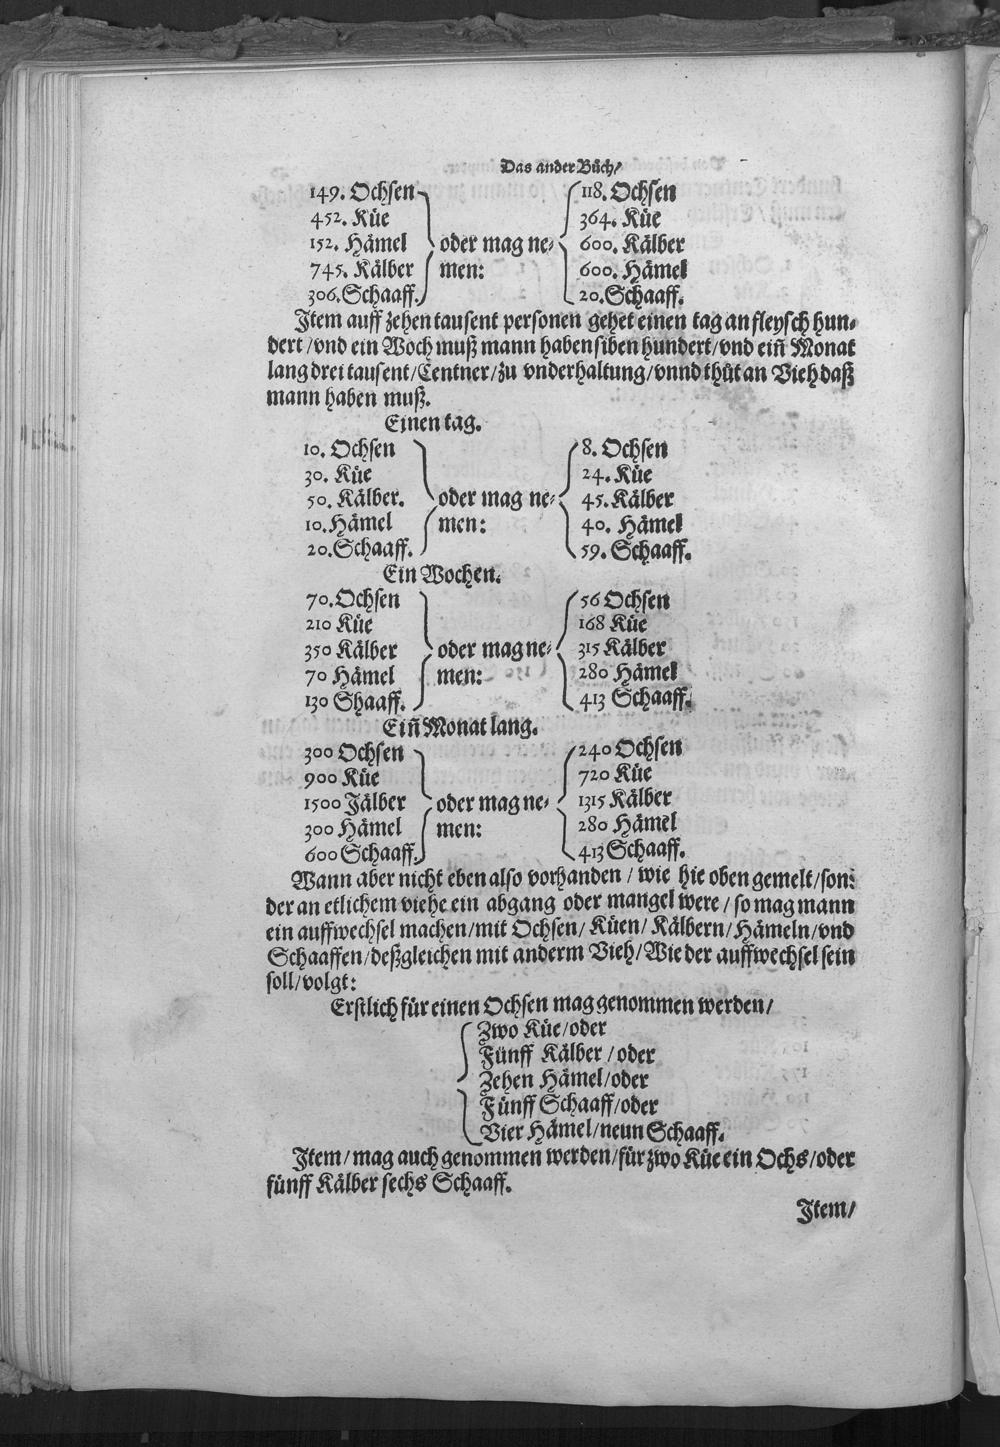 Das ander Bůch/
149. Ochsen 118. Ochsen
452. Küe 364. Küe
152. Hämel oder mag ne- 600. Kälber
745. Kälber men: 600. Hämel
306. Schaaff. 20. Schaaff.
Item auff zehen tausent personen gehet einen tag an fleysch hun-
dert/vnd ein Woch muß mann haben siben hundert/vnd eiñ Monat
lang drei tausent/Centner/zu vnderhaltung/vnnd thůt an Vieh daß
mann haben muß.
Einen tag.
10. Ochsen 8. Ochsen
30. Küe 24. Küe
50. Kälber. oder mag ne- 45. Kälber
10. Hämel men: 40. Hämel
20. Schaaff. 59. Schaaff.
Ein Wochen.
70. Ochsen 56 Ochsen
210 Küe 168 Küe
350 Kälber oder mag ne- 315 Kälber
70 Hämel men: 280 Hämel
130 Shaaff. 413 Schaaff.
Eiñ Monat lang.
300 Ochsen 240 Ochsen
900 Küe 720 Küe
1500 Jälber oder mag ne- 1315 Kälber
300 Hämel men: 280 Hämel
600 Schaaff. 413 Schaaff.
Wann aber nicht eben also vorhanden/wie hie oben gemelt/son-
der an etlichem viehe ein abgang oder mangel were/so mag mann
ein auffwechsel machen/mit Ochsen/Küen/Kälbern/Hämeln/vnd
Schaaffen/deßgleichen mit anderm Vieh/Wie der auffwechsel sein
soll/volgt:
Erstlich für einen Ochsen mag genommen werden/
Zwo Küe/oder
Fünff Kälber/oder
Zehen Hämel/oder
Fünff Schaaff/oder
Vier Hämel/neun Schaaff.
Item/mag auch genommen werden/für zwo Küe ein Ochs/oder
fünff Kälber sechs Schaaff.
Item/